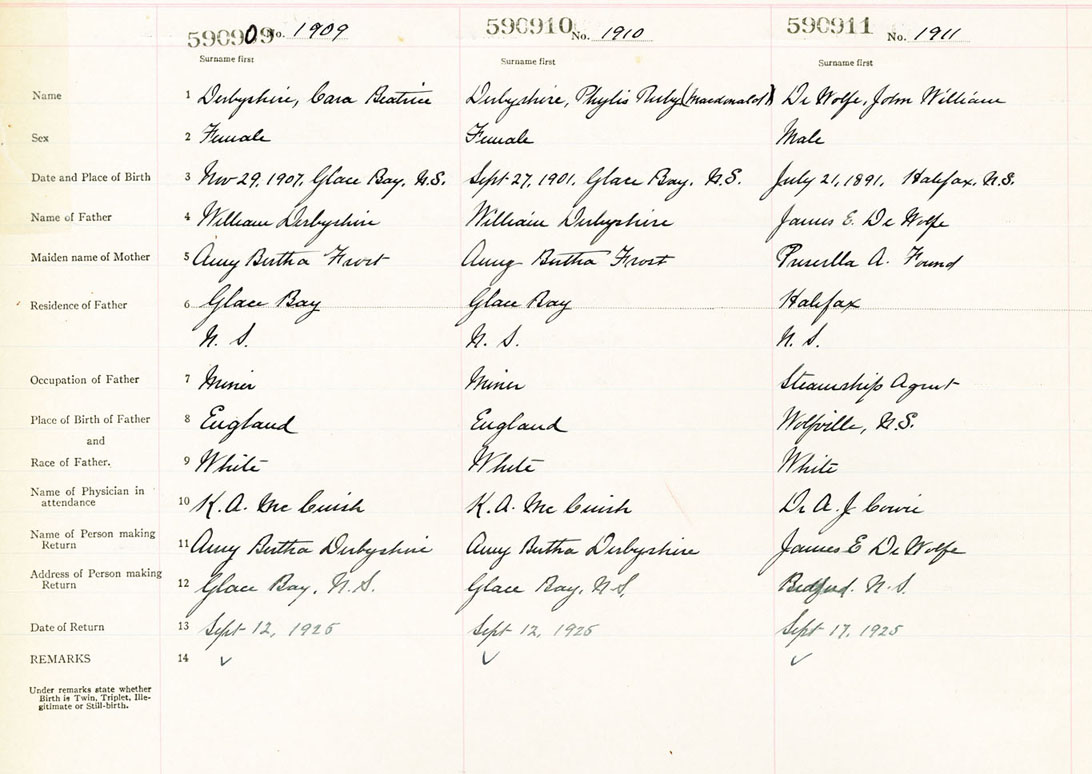 590909 No. 1909 590910 No. 1910 590911 No. 1911
Surname first Surname first Surname first
Name 1 Derbyshire, Cara Beatrice Derbyshire, Phylis Ruby (Macdonald) De Wolfe, John William
Sex 2 Female Female Male
Date and Place of Birth 3 Nov 29, 1907, Glace Bay, N.S. Sept 27, 1901, Glace Bay, N.S. July 21, 1891, Halifax, N.S.
Name of Father 4 William Derbyshire William Derbyshire James E. De Wolfe
Maiden name of Mother 5 Amy Bertha Frost Amy Bertha Frost Priscilla A. Found
Residence of Father 6 Glace Bay Glace Bay Halifax
N. S. N. S. N. S.
Occupation of Father 7 Miner Miner Steamship Agent
Place of Birth of Father 8 England England Wolfville, N.S.
and
Race of Father. 9 White White White
Name of Physician in
attendance 10 K. A. Mc Cuish K. A. Mc Cuish Dr A. J Cowie
Name of Person making
Return 11 Amy Bertha Derbyshire Amy Bertha Derbyshire James E De Wolfe
Address of Person making
Return 12 Glace Bay, N.S. Glace Bay, N.S. Bedford. N.S.
Date of Return 13 Sept 12, 1925 Sept 12, 1925 Sept 17, 1925
REMARKS 14 ✓ ✓ ✓
Under remarks state whether
Birth is Twin, Triplet, Ille-
gitimate or Still-birth.